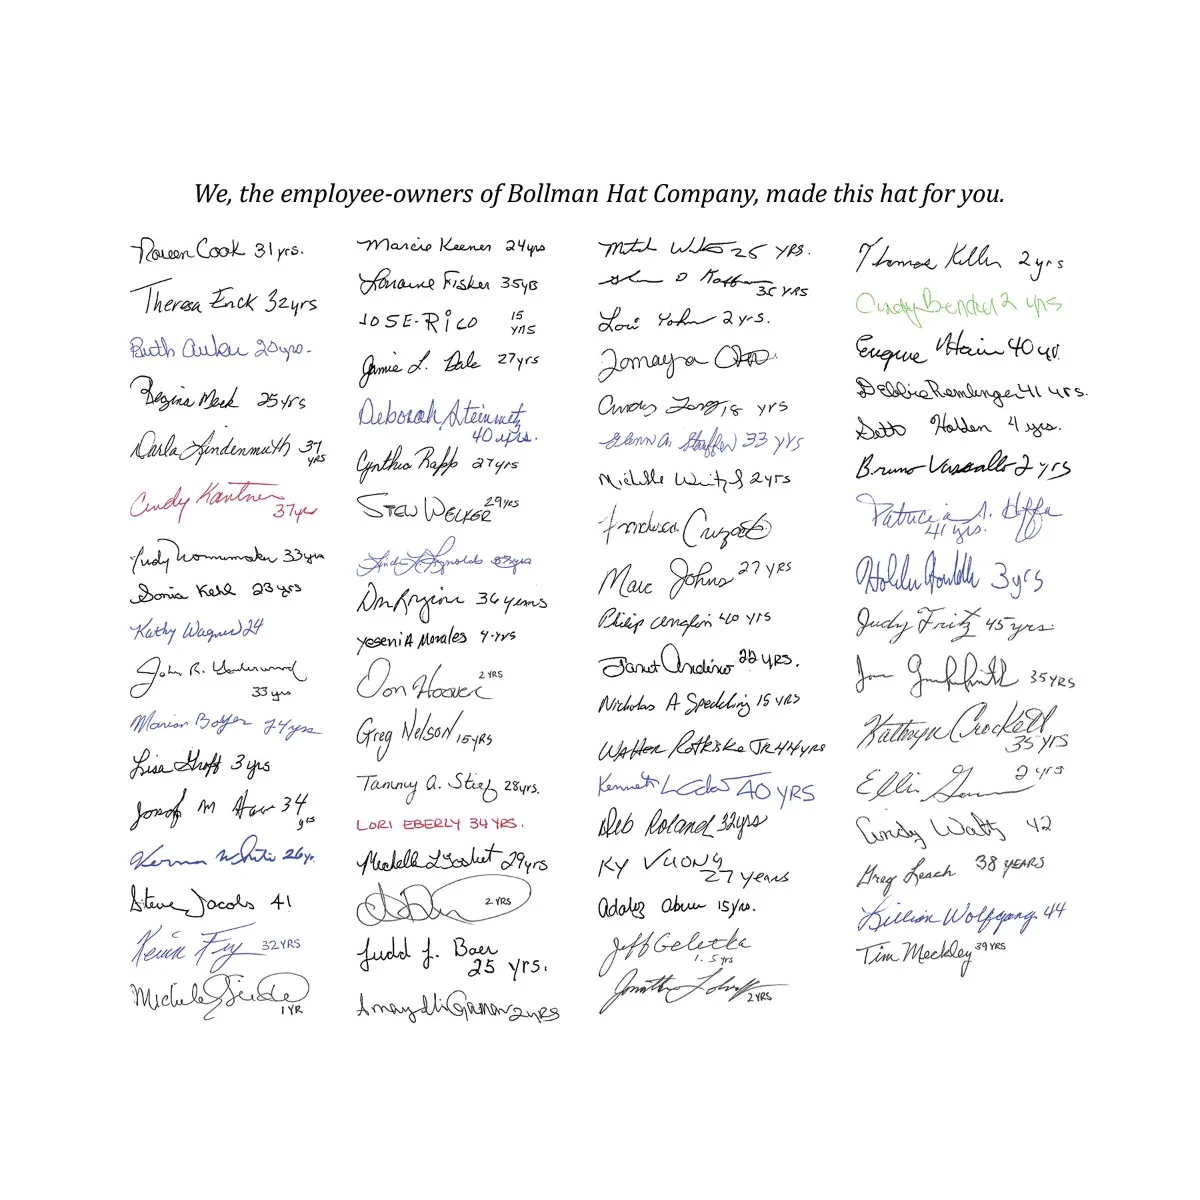 We, the employee-owners of Bollman Hat Company, made this hat for you.
Noreen Cook 31 yrs.
Theresa Enck 32 yrs
Ruth Auker 20 yrs.
Regina Meck 25 yrs
Darla Lindenmuth 37 YRS
Cindy Kantner 37 yrs
Judy 33 yrs
Sonia Kehl 23 yrs
Kathy Wagner 24
John R. 33 yrs
Marian Boyer 24 yrs
Lisa Groff 3 yrs
Josef M 34 yrs
26 yr.
Steve Jacobs 41
Kevin Fry 32 YRS
Michele 1 YR
Marcie Keener 24 yrs
Lorraine Fisher 35 yrs
JOSE-RICO 15 yrs
Jamie L. Dale 27 yrs
Deborah Steinmetz
40 yrs.
Cynthia Rapp 27 yrs
STEW WELKER 29 YRS
Linda L Reynolds yrs
36 years
YeseniA Morales 4 yrs
Don Hoover 2 YRS
Greg Nelson 15 YRS
Tammy A. Stief 28 yrs.
LORI EBERLY 34 YRS.
Mechelle 29 yrs
2 YRS
Judd J. Baer
25 yrs.
2 YRS
Mitch 25 YRS.
35 YRS
Lori Yohn 2 yrs.
Tomayra
Cindy 18 yrs
Glenn A. Stauffer 33 yrs
Michelle 2 yrs
Francisca
Marc Johns 27 YRS
Philip Anglin 40 yrs
Janet Andino 22 YRS.
Nicholas A Speckling 15 YRS
Walter Rothiske JR 44 yrs
Kenneth 40 YRS
Deb Roland 32 yrs
KY VUONG
27 years
15 yrs.
Jeff Geletka
1.5 yrs
Jonathan 2 YRS
Thomas Keller 2 yrs
Cindy Bender 2 yrs
Eugene Hain 40 yr.
Debbie Remlinger 41 yrs.
Seth Holden 4 yrs.
Bruno Vassallo 2 yrs
Patricia A. Hoffa
41 yrs.
3 yrs
Judy Fritz 45 yrs.
35 YRS
Kathryn Crockett
35 YRS
Ellis 2 yrs
Cindy Waltz 42
Greg Leach 38 YEARS
Lillian Wolfgang 44
Tim Meckley 39 YRS